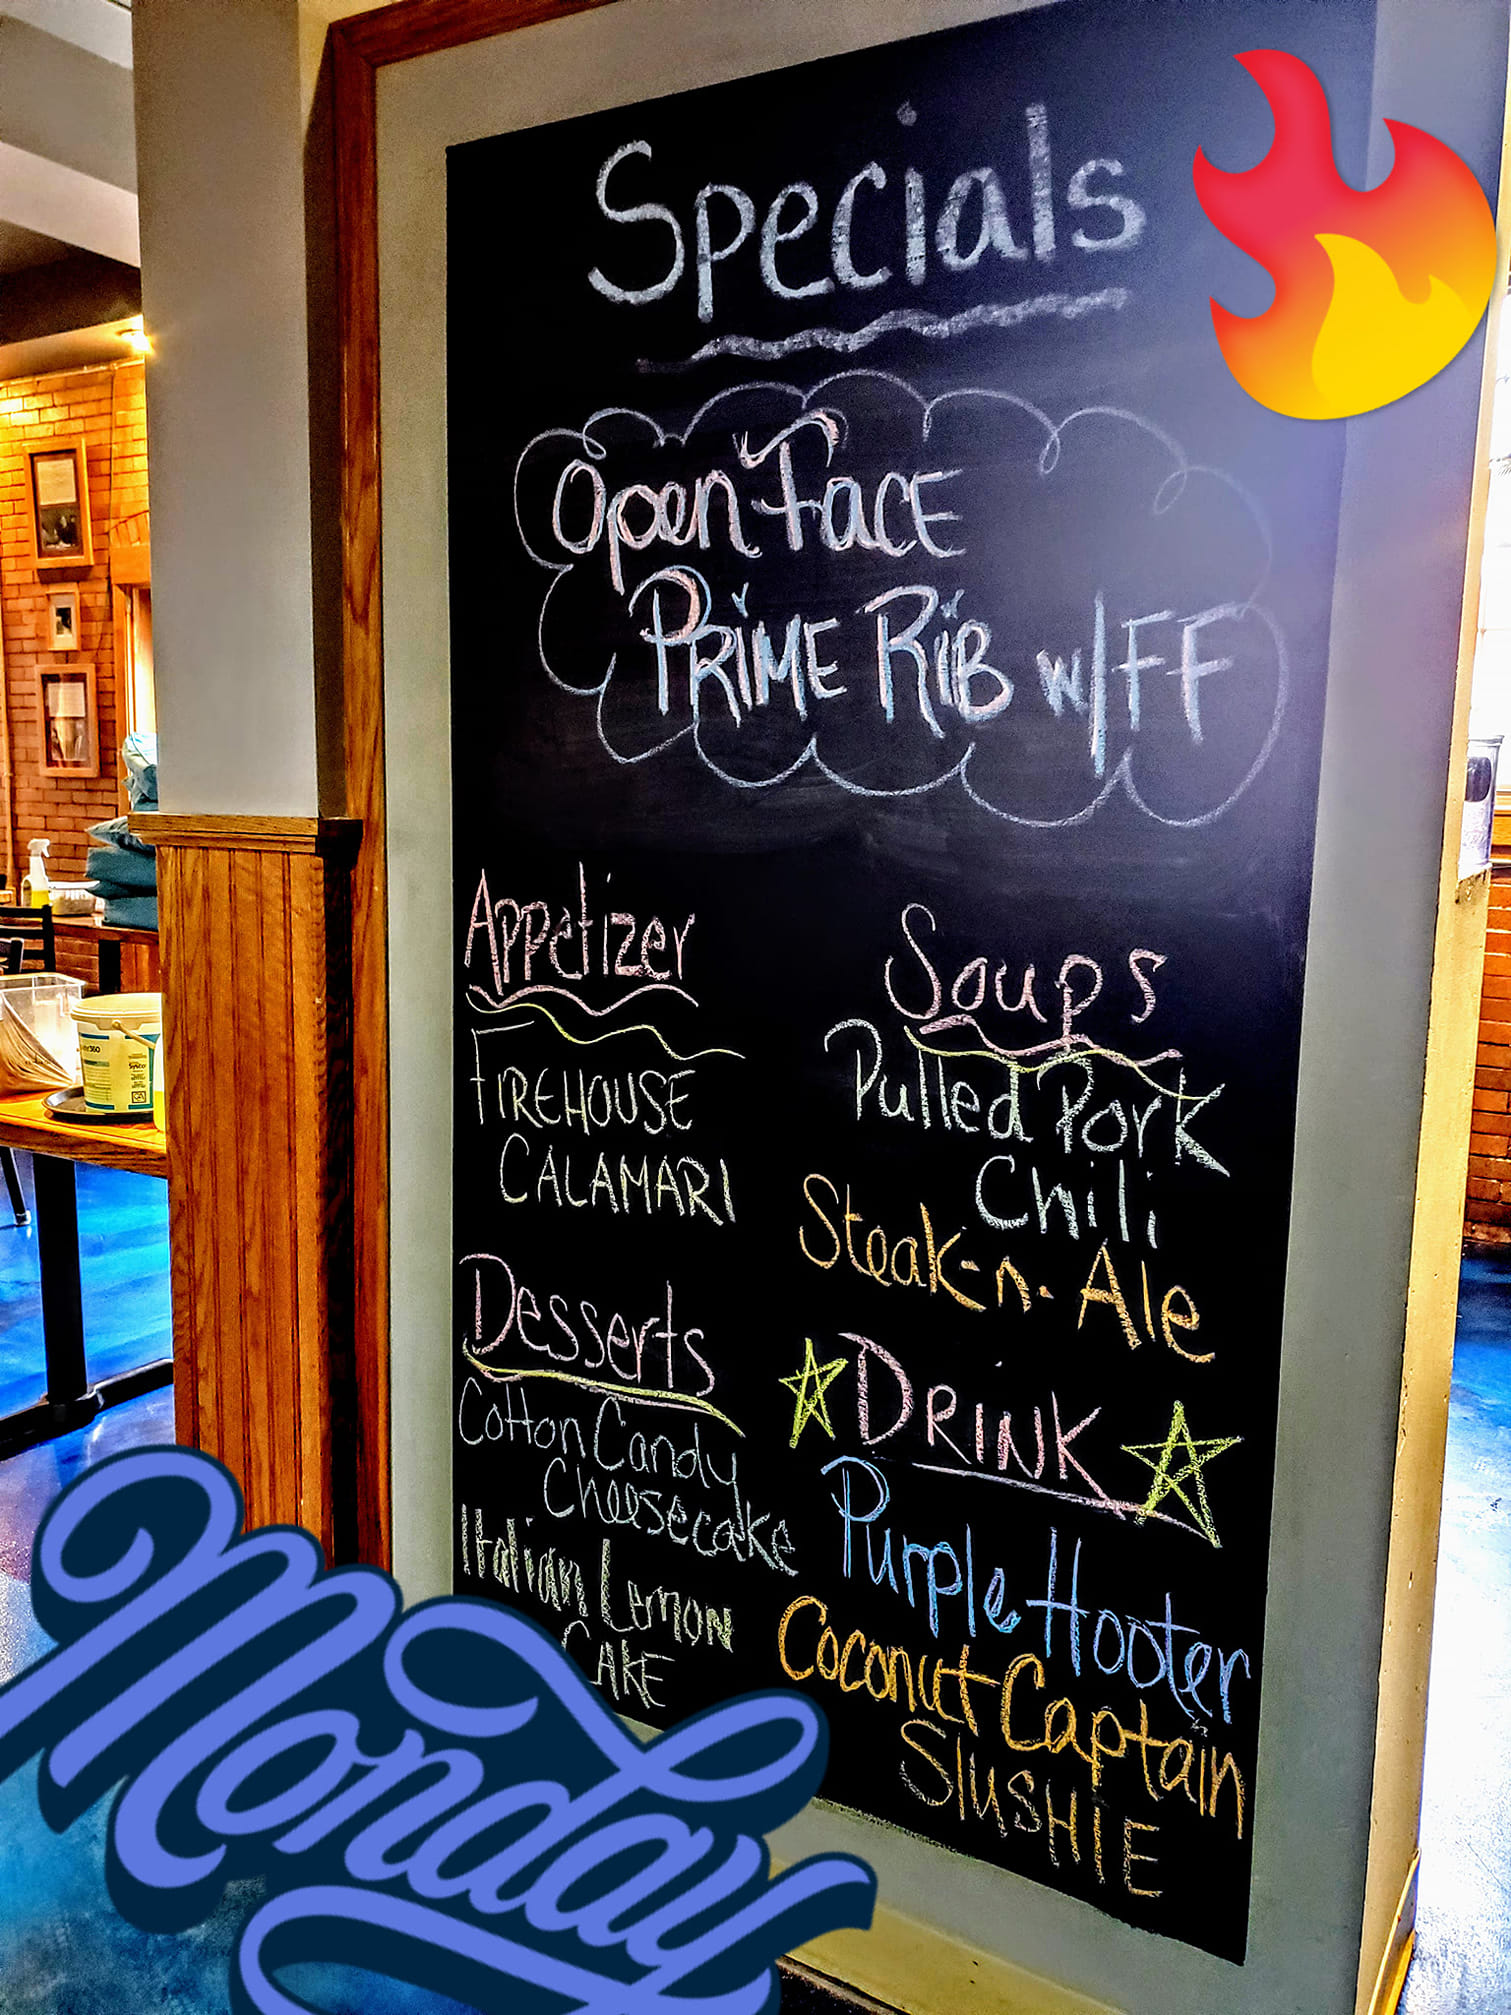 Specials
Open Face
PRiME RiB w/FF
Appetizer
FIREHOUSE
CALAMARI
Soups
Pulled Pork
Chili
Steak-n-Ale
Desserts
Cotton Candy
Cheesecake
Italian Lemon
CAKE
DRINK
Purple Hooter
Coconut Captain
SlusHIE
Monday
Sysco